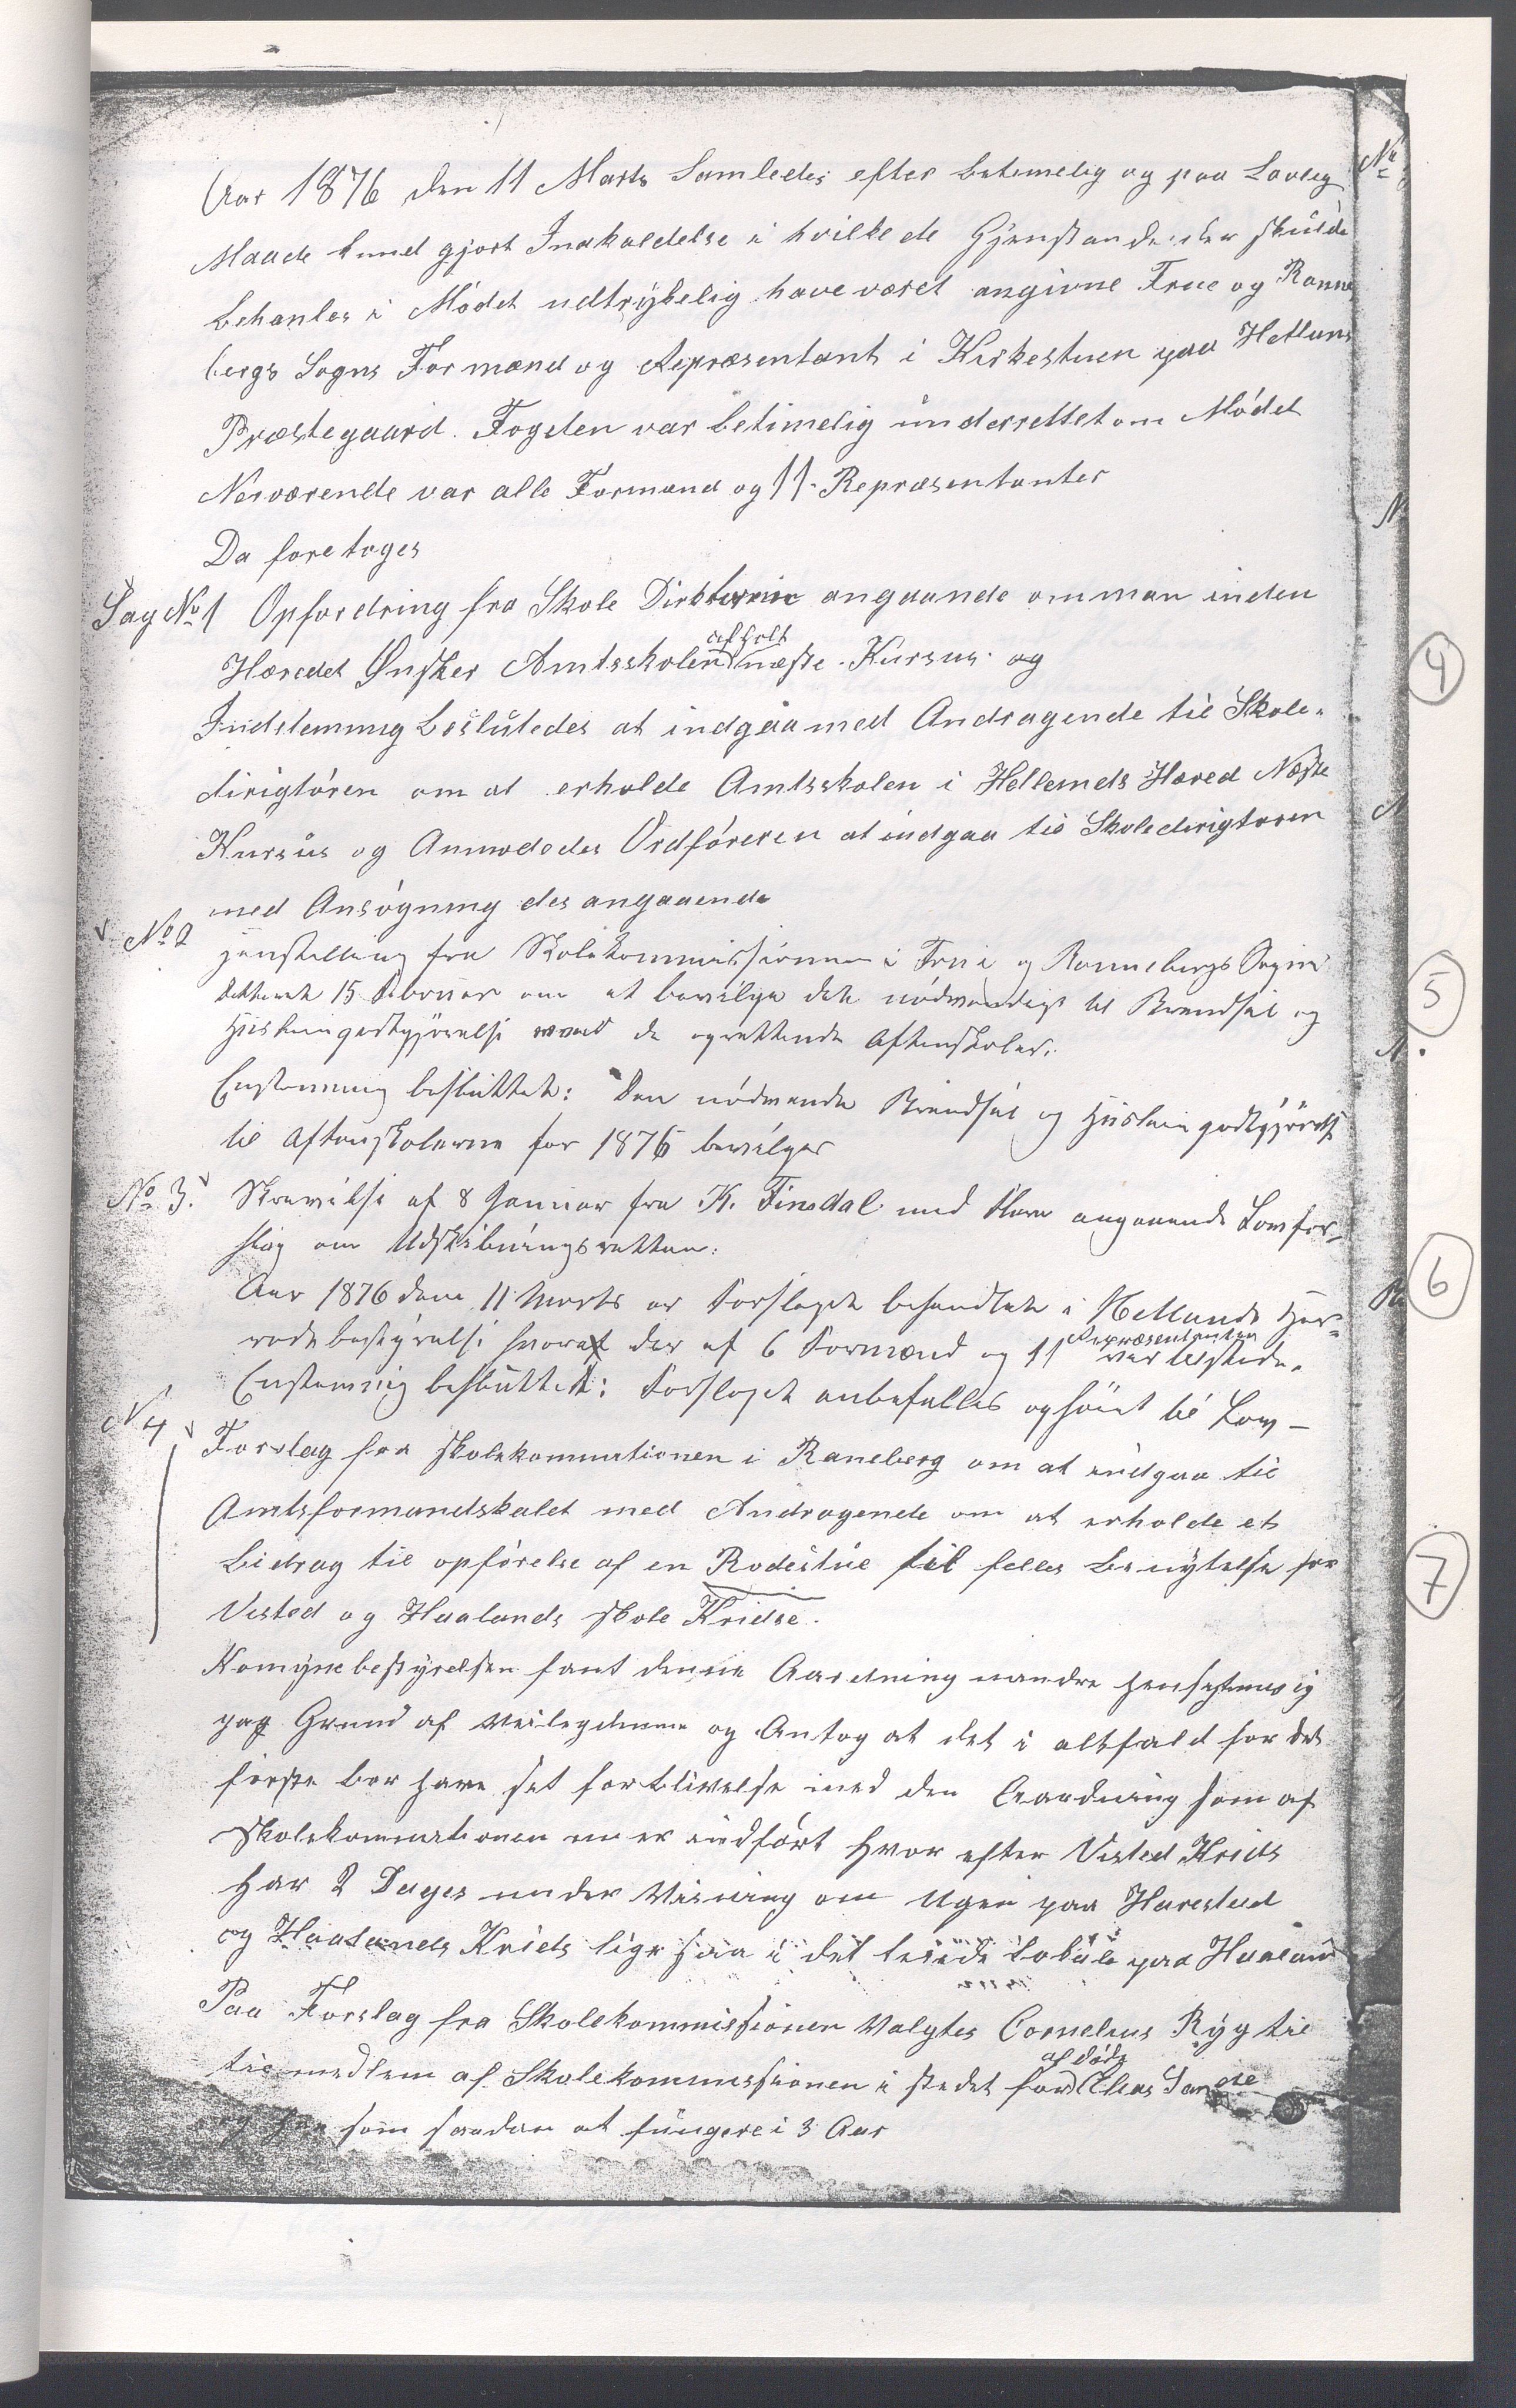 Aar 1876 den 11 Marts Samledes efter betimelig og paa Lovlig
Maade kund gjort Indkaldelse i hvilke de Gjenstande der skulde
behanles i Mödet udtrykelig have været angivne Frue og Ranne
bergs Sogns Formænd og Repræsentant i Kirkestuen paa Hetlans
Præstegaard. Fogden var betimelig underrettet om Mödet
Nerværende var alle Formænd og 11 Repræsentanter
Da foretoges
Sag No 1 Opfordring fra Skole Direktøren angaaende om man inden
afholt
Hæredet Ønsker Amtsskolen næste Kursus og
Indstemmig besluttedes at indgaa med Andragende til Skole-
dirigtören om at erholde Amtsskolen i Hetlends Hæred Næste
Kursus og Anmodedes Ordföreren at indgaa til Skoledirigtoren
med Ansögning des angaaende
No 2 Henstilling fra Skolekommissionen i Frue og Rannebergs Sogne
datteret 15 Februar om at bevilge det nödvendige til Brendsel og
Husleiegodtgjörelse ved de oprettende Aftenskoler.
Enstemmig besluttet: Den nödvende Brendsel og Husleiegodtgjörelse
til Aftenskolerne for 1876 bevilges
No 3. Skrivelse af 8 Januar fra K. Finsdal med Flere angaaende Lovfor-
slag om Udskibningsretten.
Aar 1876 den 11 Marts er Forslaget behandlet i Hetlands Her-
redsbestyrelse hvoraf der af 6 Formænd og 11 Repræsentanter var tilstede.
Enstemmig besluttet: Forslaget anbefalles ophöiet til Lov —
N 4 Forslag fra Skolekommitionen i Raneberg om at indgaa til
Amtsformandskabet med Andragende om at erholde et
bidrag til opförelse af en Rodestue til felles benytelse for
Visted og Haalands skole Kridse.
Komynebestyrelsen fant denne Aardning mindre hensigtmesig
paa Grund af Veilegdenne og Antog at det i altfald for det
förste bør have sit forblivelse med den Aardning som af
skolekommitionen nu er indfört hvor efter Visted Krids
har 2 Dages under Visning om Ugen paa Harestad
og Haalands Krids lige saa i det leiede lokale paa Haaland
Paa Forslag fra Skolekommissionen Valgtes Cornelius Ryg til
af döde
til medlem af Skolekommissionen i stedet for Elias Sande
og han som saadan at fungere i 3 Aar
4
5
6
7